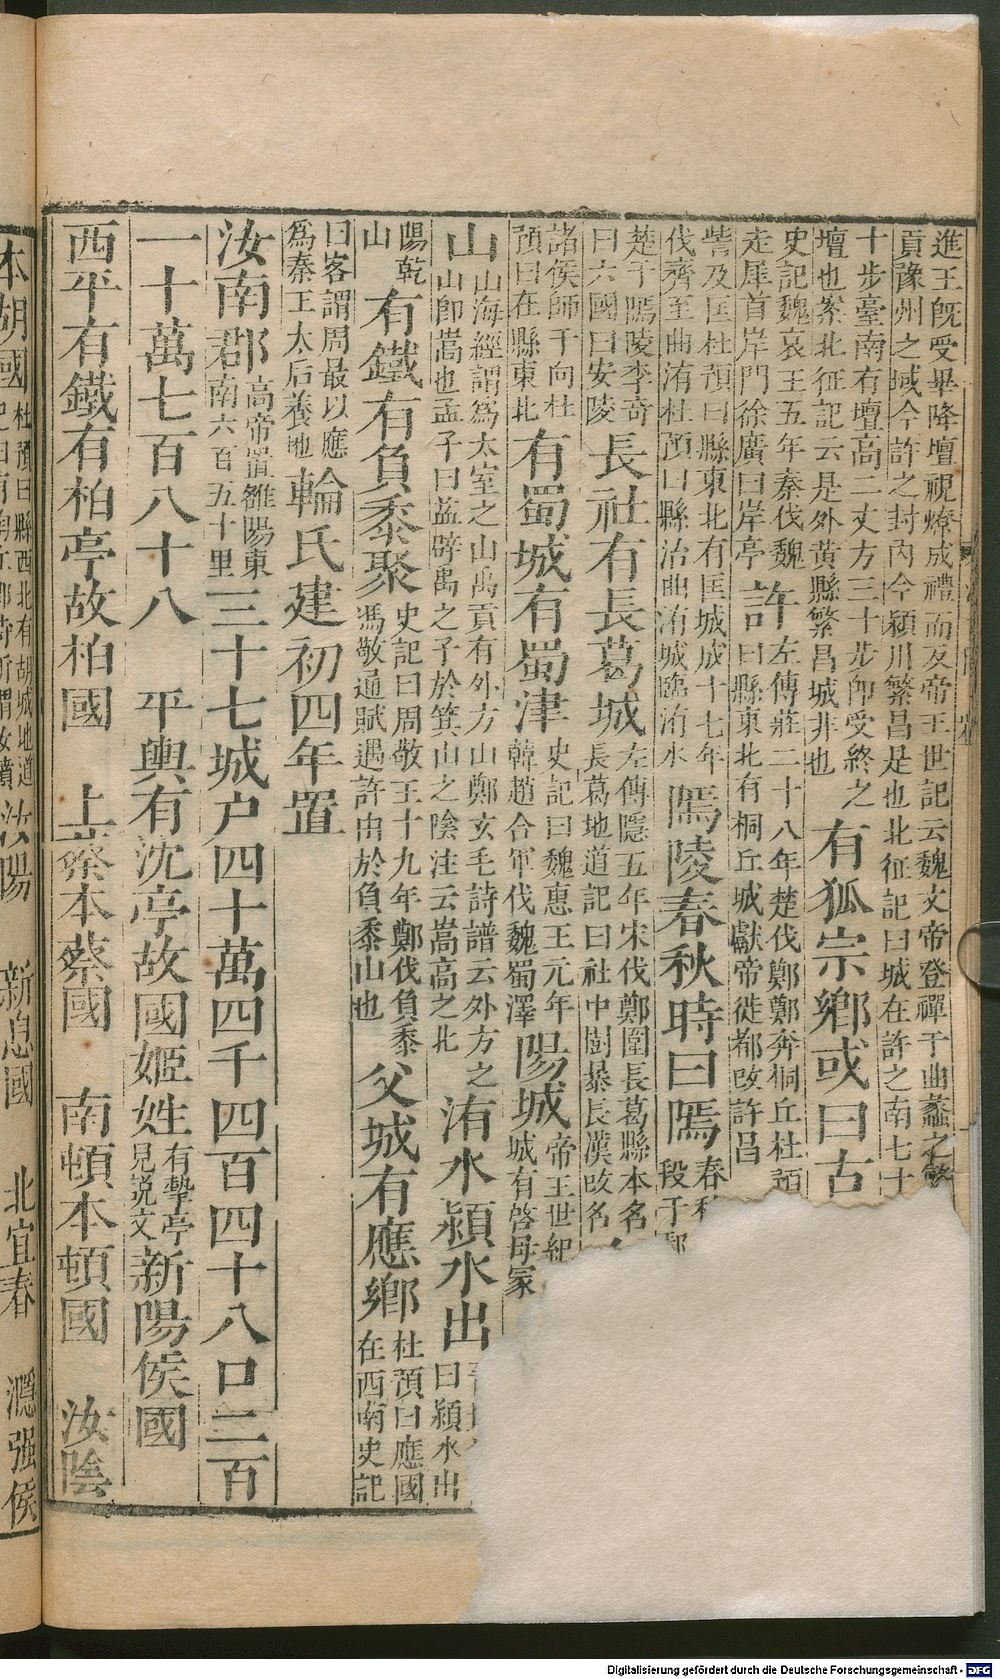 進王既受畢降壇視燎成禮而反帝王世記云魏文帝登禪于曲蠡之繁
貢豫州之域今許之封內今潁川繁昌是也北征記曰城在許之南七十
十步臺南有壇高二丈方三十步即受終之
壇也案北征記云是外黃縣繁昌城非也
有狐宗鄉或曰古
史記魏哀王五年秦伐魏
走犀首岸門徐廣曰岸亭
許
左傳莊二十八年楚伐鄭鄭奔桐丘杜預
曰縣東北有桐丘城獻帝徙都改許昌
訾及匡杜預曰縣東北有匡城成十七年
伐齊至曲洧杜預曰縣治曲洧城臨洧水
隝陵春秋時曰隝
春秋
段于鄢
楚子隝陵李奇
曰六國曰安陵
長社有長葛城
左傳隱五年宋伐鄭圍長葛縣本名
長葛地道記曰社中樹暴長漢改名
諸侯師于向杜
預曰在縣東北
有蜀城有蜀津
史記曰魏惠王元年
韓趙合軍伐魏蜀澤
陽城
帝王世紀
城有啓母冢
山
山海經謂爲太室之山禹貢有外方山鄭玄毛詩譜云外方之
山即嵩也孟子曰益辟禹之子於箕山之陰注云嵩高之北
洧水潁水出
曰潁水出
陽乾
山
有鐵有負黍聚
史記曰周敬王十九年鄭伐負黍
馮敬通賦遇許由於負黍山也
父城有應鄉
杜預曰應國
在西南史記
曰客謂周最以應
爲秦王太后養地
輪氏建初四年置
汝南郡
高帝置雒陽東
南六百五十里
三十七城户四十萬四千四百四十八口二百
一十萬七百八十八
平輿有沈亭故國姬姓
有摯亭
見說文
新陽侯國
西平有鐵有柏亭故柏國
上蔡本蔡國
南頓本頓國
汝陰
本胡國
杜預曰縣西北有胡城地道
汝陽
新息國
北宜春
㶏强侯
Digitalisierung gefördert durch die Deutsche Forschungsgemeinschaft - DFG